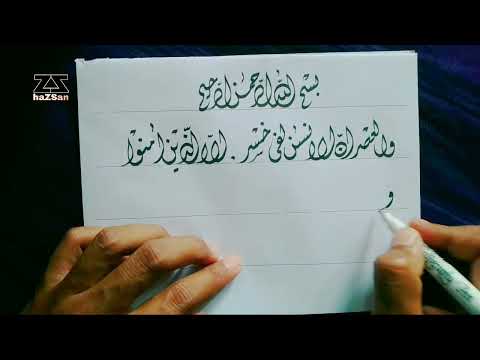 haZSan
بسم الله الرحمن الرحيم
والعصر ان الانسن لفى خسر . الا الذين امنوا
و